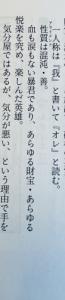 一人称は『我』と書いて『オレ』と読む。
性質は混沌・善。
血も涙もない暴君であり、あらゆる財宝・あらゆる
悦楽を究め、楽しんだ英雄。
気分屋ではあるが、気分が悪い、という理由で手を